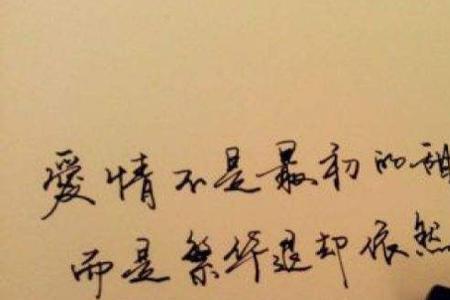 愛情不是最初的甜
而是繁华退却依然